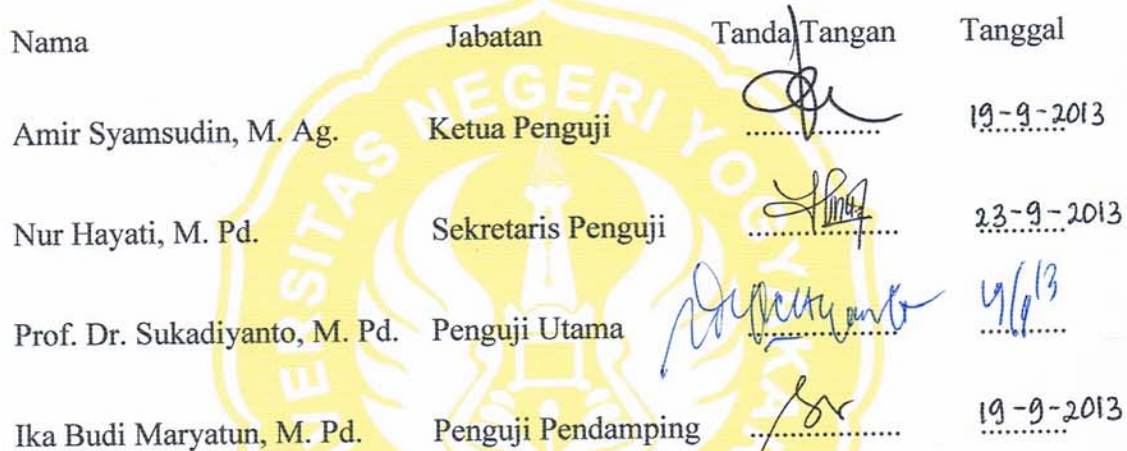 Nama Jabatan Tanda Tangan Tanggal
Amir Syamsudin, M. Ag. Ketua Penguji .................. 19-9-2013
Nur Hayati, M. Pd. Sekretaris Penguji .................. 23-9-2013
Prof. Dr. Sukadiyanto, M. Pd. Penguji Utama ..................
Ika Budi Maryatun, M. Pd. Penguji Pendamping .................. 19-9-2013
NEGERI YOGYAKA